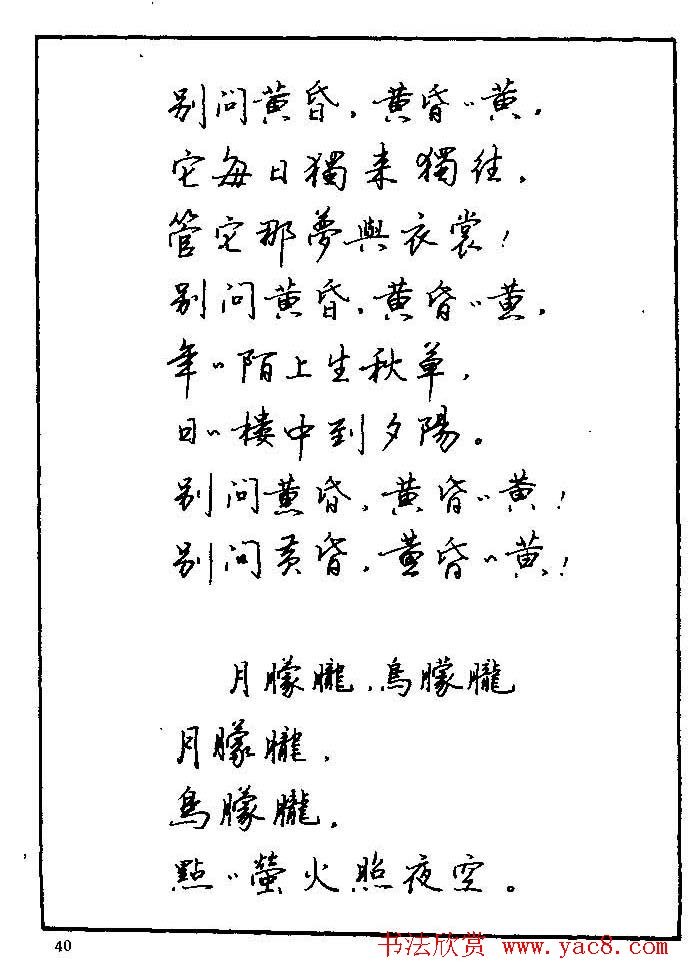 别問黄昏，黄昏〃黄，
它每日獨来獨往，
管它那夢與衣裳！
别問黄昏，黄昏〃黄，
年〃陌上生秋草，
日〃樓中到夕陽。
别問黄昏，黄昏〃黄！
别問黄昏，黄昏〃黄！
月朦朧，鳥朦朧
月朦朧，
鳥朦朧，
點〃螢火照夜空。
40
书法欣赏 www.yac8.com